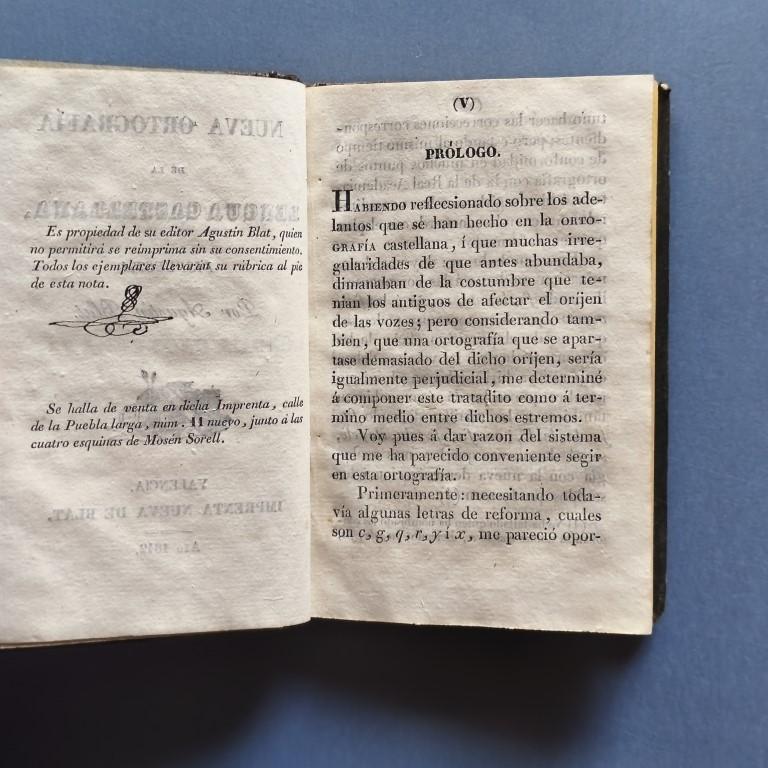 Es propiedad de su editor Agustin Blat, quien
no permitirá se reimprima sin su consentimiento.
Todos los ejemplares llevarán su rúbrica al pie
de esta nota.
Se halla de venta en dicha Imprenta, calle
de la Puebla larga, núm. 11 nuevo, junto á las
cuatro esquinas de Mosén Sorell.
(V)
PRÓLOGO.
HABIENDO reflecsionado sobre los ade-
lantos que se han hecho en la ORTO-
GRAFÍA castellana, í que muchas irre-
gularidades de que antes abundaba,
dimanaban de la costumbre que te-
nian los antiguos de afectar el oríjen
de las vozes; pero considerando tam-
bien, que una ortografía que se apar-
tase demasiado del dicho oríjen, sería
igualmente perjudicial, me determiné
á componer este tratadito como á ter-
mino medio entre dichos estremos.
Voy pues á dar razon del sistema
que me ha parecido conveniente segir
en esta ortografía.
Primeramente: necesitando toda-
vía algunas letras de reforma, cuales
son c, g, q, r, y í x, me pareció opor-